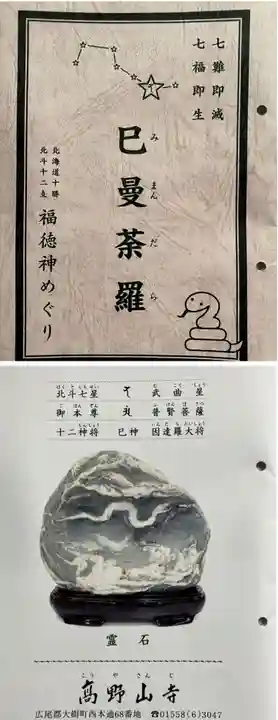 七難即滅
七福即生
巳曼荼羅
み まん だ ら
北海道十勝
北斗十二支
福徳神めぐり
北斗七星 武曲星
御本尊 普賢菩薩
十二神将 巳神 因達羅大将
霊石
こうやさんじ
高野山寺
広尾郡大樹町西本通68番地 ☎01558(6)3047